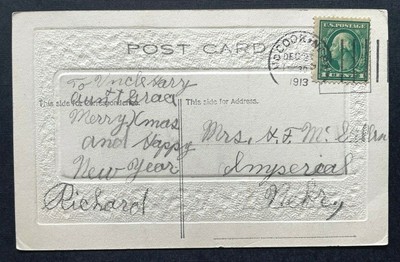 POST CARD
McCOOK, N
DEC 2
1913
U.S. POSTAGE
1 CENT 1
To Uncle Harry
Aunt Grace
This side for Correspondence.
This side for Address.
Merry Xmas
and Happy
New Year
Richard
Mrs. H. F. McMillen
Imperial
Nebr